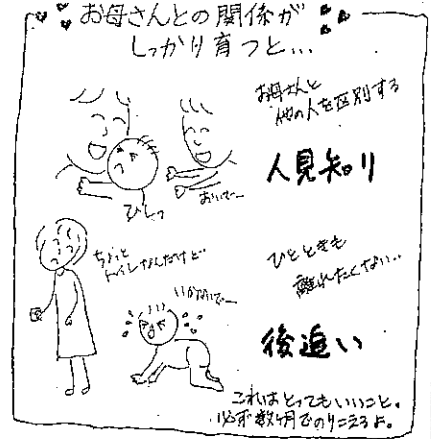 お母さんとの関係が
しっかり育つと…
お母さんと
他の人を区別する
人見知り
ひしっ
おいで〜
ちょっと
トイレなんだけど…
ひとときも
離れたくない…
いかないで〜
後追い
これはとってもいいこと。
必ず数ヶ月でのりこえるよ。